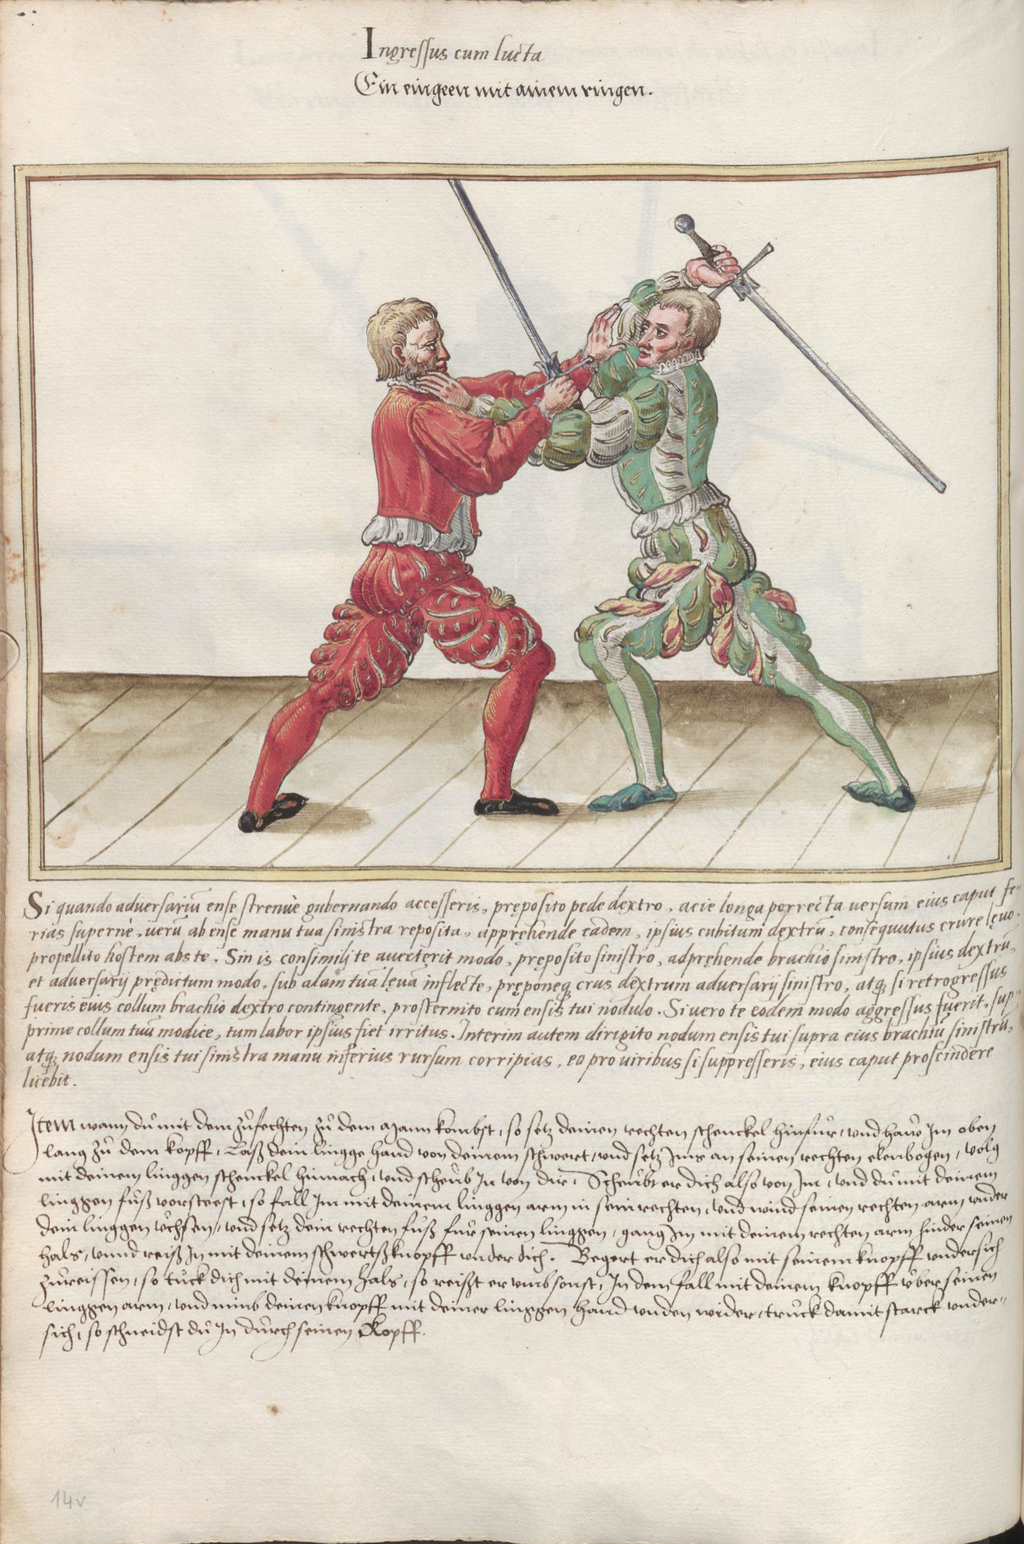 Ingressus cum lucta
Ein eingeen mit ainem ringen.
28
Si quando adversariũ ense strenuè gubernando accesseris, pręposito pede dextro, acie longa porrecta versum eius caput fe⸗
rias superne, verũ ab ense manu tua sinistra reposita, apprehende eadem, ipsius cubitum dextrũ, consequutus crure lęvo,
propellito hostem abs te. Sin is consimili te auerterit modo, pręposito sinistro, adprehende brachio sinistro, ipsius dextrũ,
et adversarij prędictum modo, sub alam tuã lęuã inflecte, pręponeq, crus dextrum adversarij sinistro, atq, si retrogressus
fueris eius collum brachio dextro contingente, prosternito eum ensis tui nodulo. Si vero te eodem modo aggressus fuerit, sup⸗
prime collum tuũ modice, tum labor ipsius fiet irritus. Interim autem dirigito nodum ensis tui supra eius brachiũ sinistrũ,
atq, nodum ensis tui sinistra manu inferius rursum corripias, eo pro viribus si suppresseris, eius caput proscindere
licebit.
Item wann dů mit dem zůfechten zů dem Mann kombst, so setz deinen rechten schenckel hinfür, vnd haw Im oben
lang zů dem kopff, Laß dein lingge hand von deinem schwert, vnd setz Ims an seinen rechten elenbogen, volg
mit deinem linggen schenckel hinnach, vnd scheub In von dir, Scheubt er dich also von Im, vnd du mit deinem
linggen fůß vorsteest, so fall Im mit deinem linggen arm in sein rechten, vnd wind seinen rechten arm vnder
dein linggen Vchsen, vnd setz dein rechten fůß für seinen linggen, gang Im mit deinem rechten arm hinder seinen
hals, vnnd reiß In mit deinem schwertßknopff vnder dich. Begert er dich also mit seinem knopff vndersich
zůreissen, so tuck dich mit deinem hals, so reißt er vmb sonst, In dem fall mit deinem knopff vber seinen
linggen arm, vnd nimb deinen knopff mit deiner linggen hand vnden wider, truck damit starck vnder⸗
sich, so schneidst dů In durch seinen Kopff.
14v